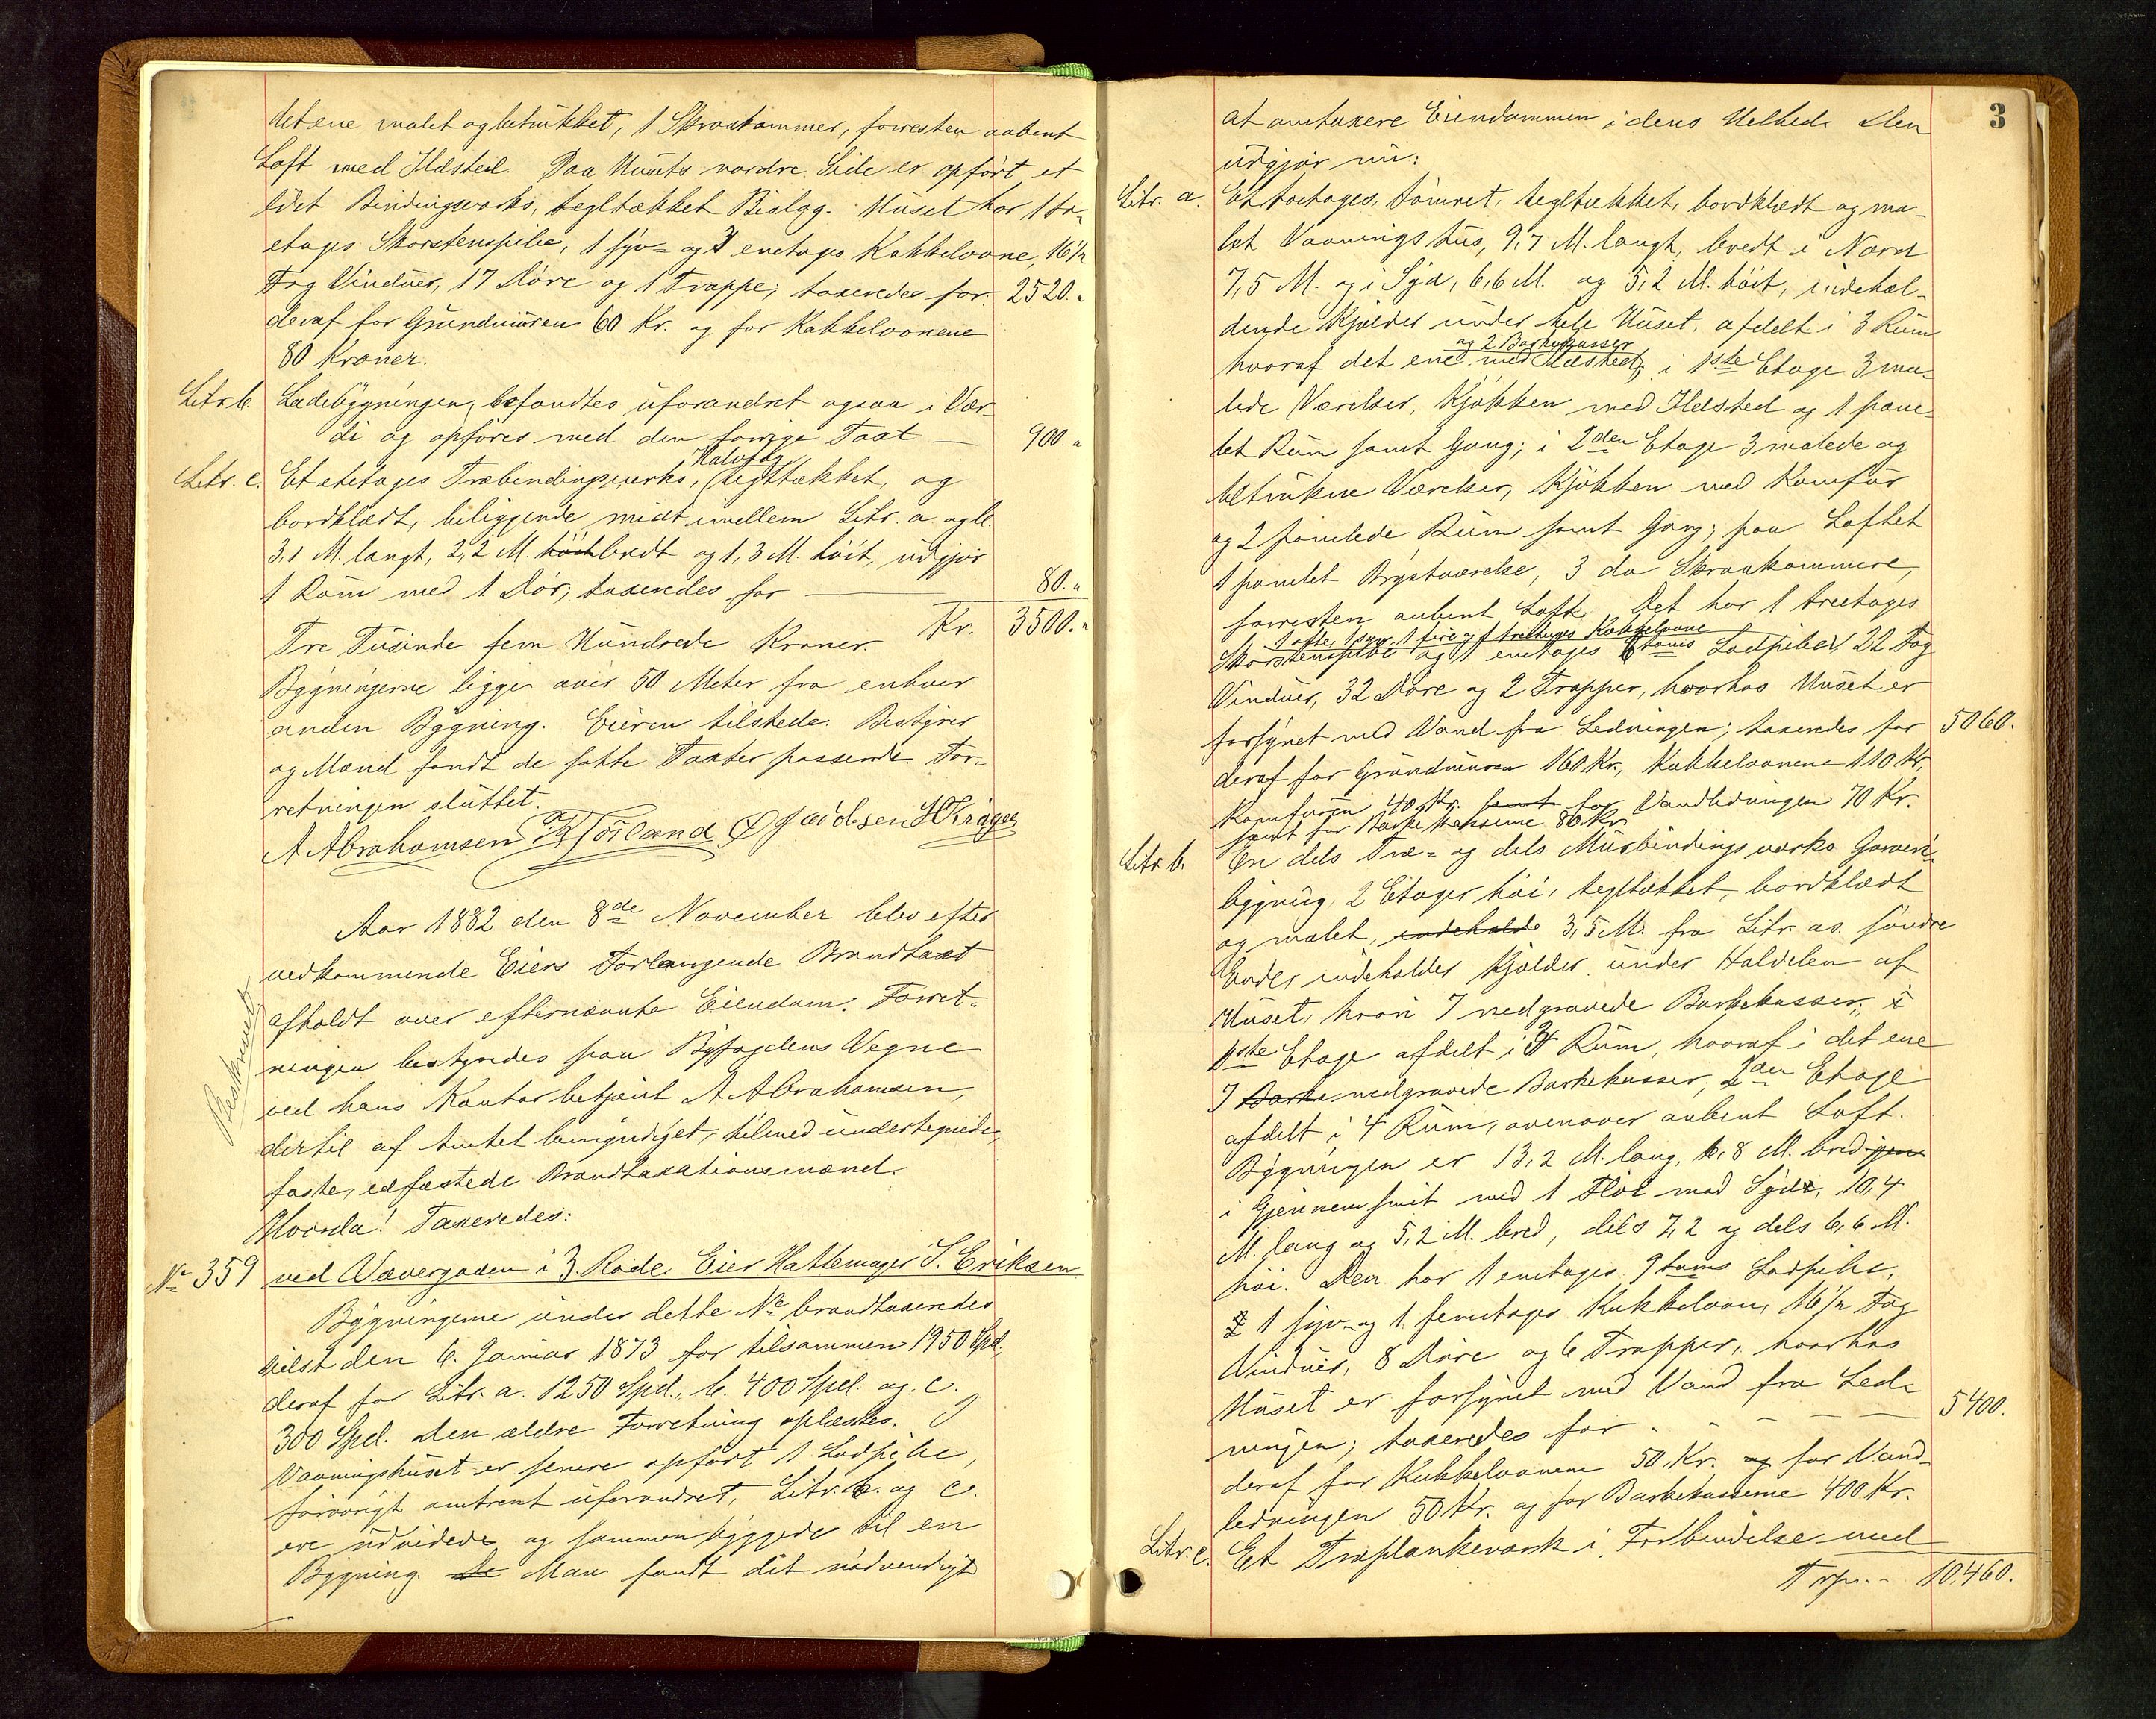 det ene malet og betrukket, 1 Skraakammer, forresten aabent
Loft med Ildsted. Paa Husets nordre Side er opført et
lidet Bindingsverks, tegltækket Bislag. Huset har 1 to-
etages Skorstenspibe, 1 syv- og 3 enetages Kakkelovne, 16½
Fag Vinduer, 17 Døre og 1 Trappe; taxeredes for 2520.„
deraf for Grundmuren 60 Kr. og for Kakkelovnene
80 Kroner.
Litr. b. Ladebygningen, befandtes uforandret ogsaa i Vær-
di og opføres med den forrige Taxt — 900.„
Halvtag
Litr. c. Et etetages Træbindingsværks, tegltækket, og
bordklædt, beliggende midt imellem Litr. a. og b.
3,1 M. langt, 2,2 M. høit bredt og 1,3 M. høit, udgjør
1 Rum med 1 Dør; taxeredes for — 80.„
Tre Tusinde fem Hundrede Kroner. Kr. 3500.„
Bygningerne ligge over 50 Meter fra enhver
anden Bygning. Eieren tilstede. Bestyrer
og Mænd fandt de satte Taxter passende. For-
retningen sluttet.
A Abrahamsen
Aar 1882 den 8de November blev efter
vedkommende Eiers Forlangende Brandtaxt
afholdt over efternævnte Eiendom. Forret-
ningen bestyredes paa Byfogdens Vegne
ved hans Kontorbetjent A Abrahamsen,
dertil af Amtet bemyndiget, tilmed undertegnede,
faste, edfæstede Brandtaxationsmænd.
Beskrevet
Hvorda! Taxeredes:
No 359 ved Vævergaden i 3. Rode. Eier Hattemager S. Eriksen
Bygningerne under dette No brandtaxeredes
sidst den 6. Januar 1873 for tilsammen 1950 Spd.,
deraf for Litr. a. 1250 Spd., b. 400 Spd. og c.
300 Spd. Den ældre Forretning oplæstes. I
Vaaningshuset er senere opført 1 Ladpibe,
forøvrigt omtrent uforandret, Litr. b. og c.
ere udvidede og sammenbyggede til en
Bygning. De Man fandt det nødvendigt
3
at omtaxere Eiendommen i dens Helhed. Den
udgjør nu:
Litr. a. Et toetages, tømret, tegltækket, bordklædt og ma-
let Vaaningshus, 9,7 M. langt, bredt i Nord
7,5 M. og i Syd, 6,6 M. og 5,2 M. høit, indehol-
dende Kjælder under hele Huset, afdelt i 3 Rum
og 2 Barkekasser
hvoraf det ene med Ildsted; i 1ste Etage 3 ma-
lede Værelser, Kjøkken med Ildsted og 1 pane-
let Rum samt Gang; i 2den Etage 3 malede og
betrukne Værelser, Kjøkken med Komfur
og 2 panelede Rum samt Gang; paa Loftet
1 panelet Brystværelse, 3 do Skraakammere,
forresten aabent Loft. Det har 1 treetages
1 otte, 1 syv, 1 fire og 1 treetages Kakkelovne
Skorstenspibe og 1 enetages 6toms Ladpibe, 22 Fag
Vinduer, 32 Døre og 2 Trapper, hvorhos Huset er
forsynet med Vand fra Ledningen; taxeredes for 5060.
deraf for Grundmuren 160 Kr., Kakkelovnene 110 Kr,
Komfuren 40 Kr. samt for Vandledningen 70 Kr.
samt for Barkekasserne 80 Kr.
Litr b. En dels Træ- og dels Murbindingsværks Garveri-
bygnig, 2 Etager høi, tegltækket, bordklædt
og malet, indeholde 3,5 M. fra Litr. as. søndre
Ende, indeholder Kjælder under Haldelen af
Huset, hvori 7 nedgravede Barkekasser, i
1ste Etage afdelt i 3 Rum, hvoraf i det ene
7 Barke nedgravede Barkekasser, 2den Etage
afdelt i 4 Rum, ovenover aabent Loft.
Bygningen er 13,2 M. lang, 6,8 M. bred gjen
i Gjennemsnit med 1 Fløi mod Syd, 10,4
M. lang og 5,2 M. bred, dels 7,2 og dels 6,6 M.
høi. Den har 1 enetages 9toms Ladpibe,
1 syv- og 1 femetages Kakkelovn, 16½ Fag
Vinduer, 8 Døre og 6 Trapper, hvorhos
Huset er forsynet med Vand fra Led-
ningen; taxeredes for — 5400.
deraf for Kakkelovnene 50 Kr. og for Vand-
ledningen 50 Kr. og for Barkekasserne 400 Kr.
Litr. c. Et Træplankeværk i Forbindelse med
Trp. - 10,460.